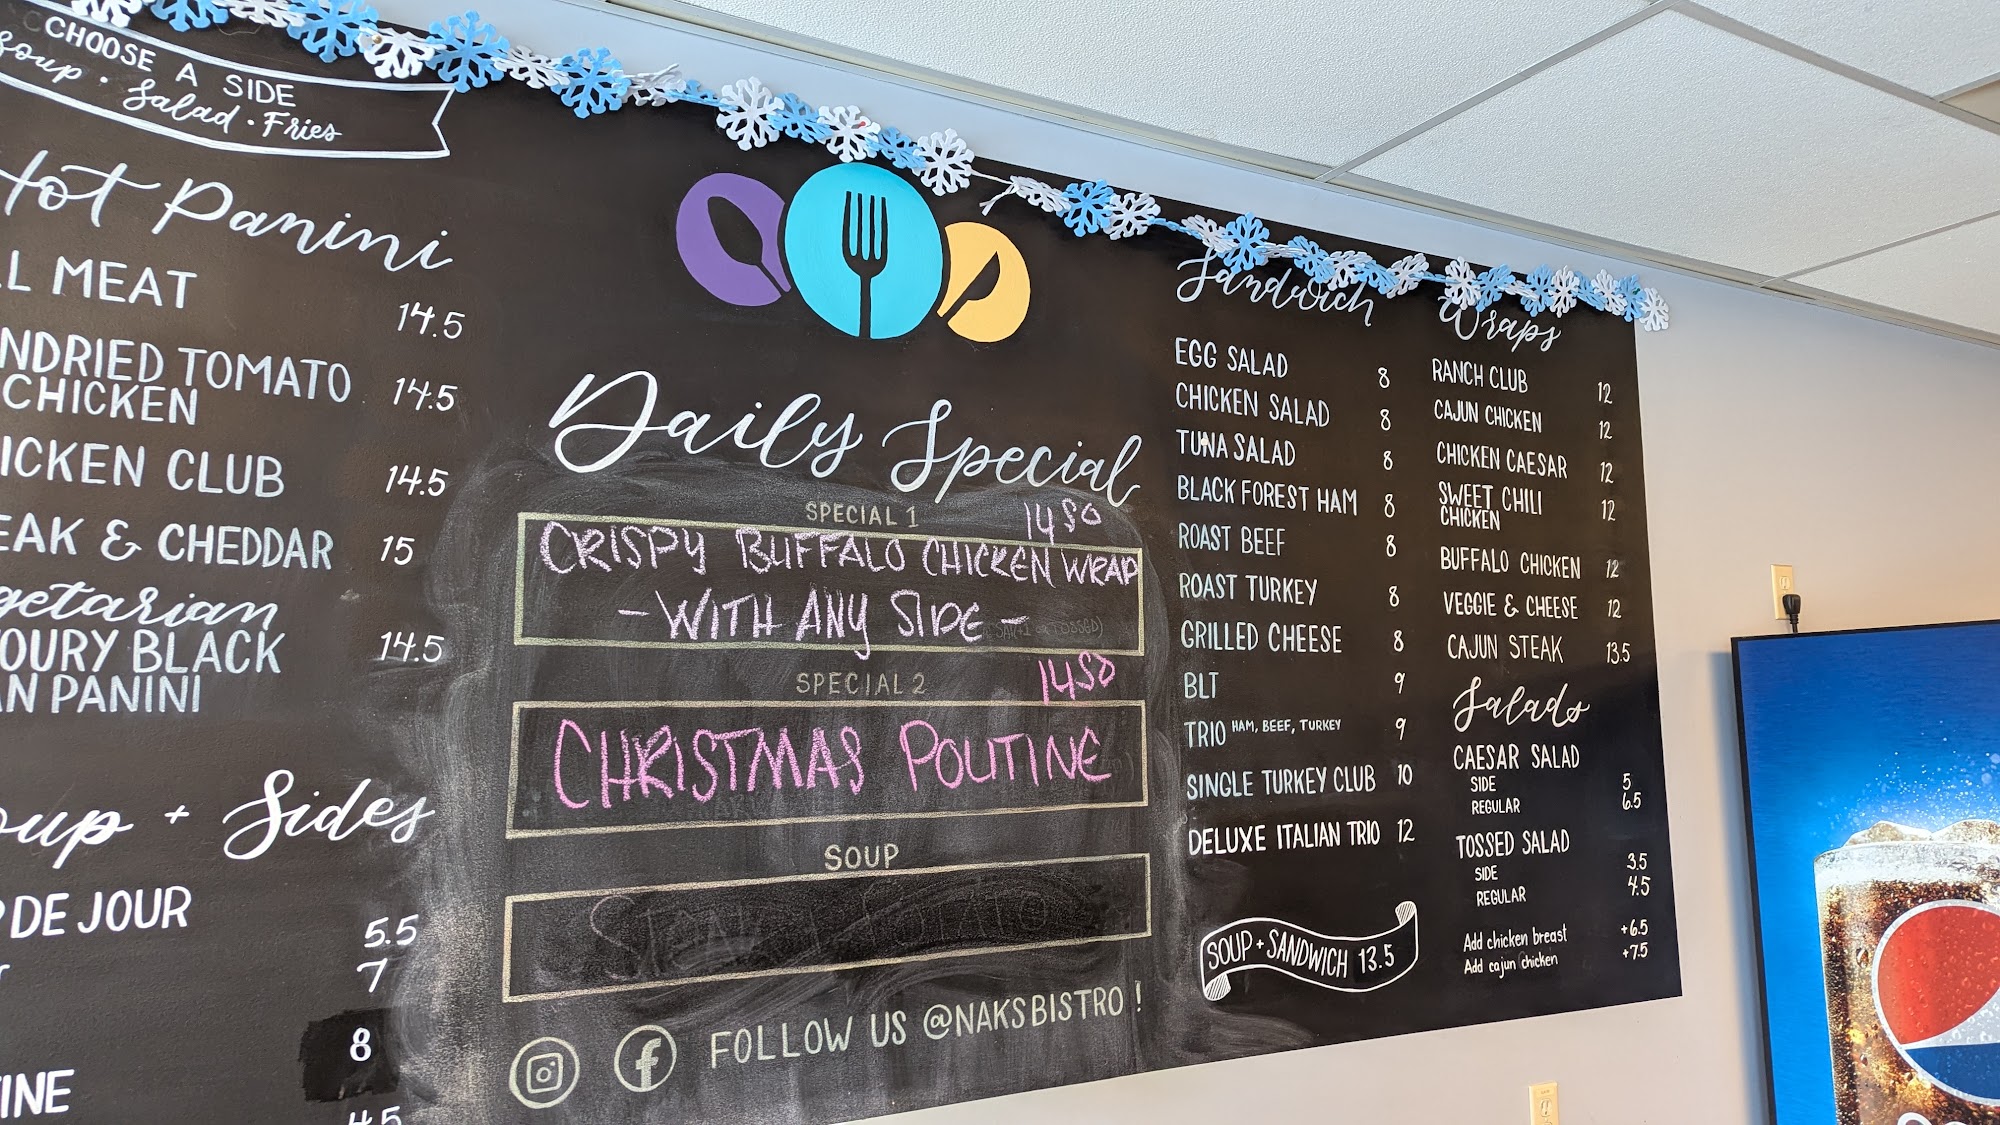 CHOOSE A SIDE
Soup · Salad · Fries
Hot Panini
MEAT 14.5
TOMATO
CHICKEN 14.5
CLUB 14.5
& CHEDDAR 15
BLACK
PANINI 14.5
+ Sides
DE JOUR 5.5
7
8
4.5
Daily Special
SPECIAL 1 14 50
CRISPY BUFFALO CHICKEN WRAP
- WITH ANY SIDE -
SPECIAL 2 14 50
CHRISTMAS POUTINE
SOUP
FOLLOW US @NAKSBISTRO!
Sandwich
EGG SALAD 8
CHICKEN SALAD 8
TUNA SALAD 8
BLACK FOREST HAM 8
ROAST BEEF 8
ROAST TURKEY 8
GRILLED CHEESE 8
BLT 9
TRIO HAM, BEEF, TURKEY 9
SINGLE TURKEY CLUB 10
DELUXE ITALIAN TRIO 12
SOUP + SANDWICH 13.5
Wraps
RANCH CLUB 12
CAJUN CHICKEN 12
CHICKEN CAESAR 12
SWEET CHILI
CHICKEN 12
BUFFALO CHICKEN 12
VEGGIE & CHEESE 12
CAJUN STEAK 13.5
Salads
CAESAR SALAD
SIDE 5
REGULAR 6.5
TOSSED SALAD
SIDE 3.5
REGULAR 4.5
Add chicken breast +6.5
Add cajun chicken +7.5